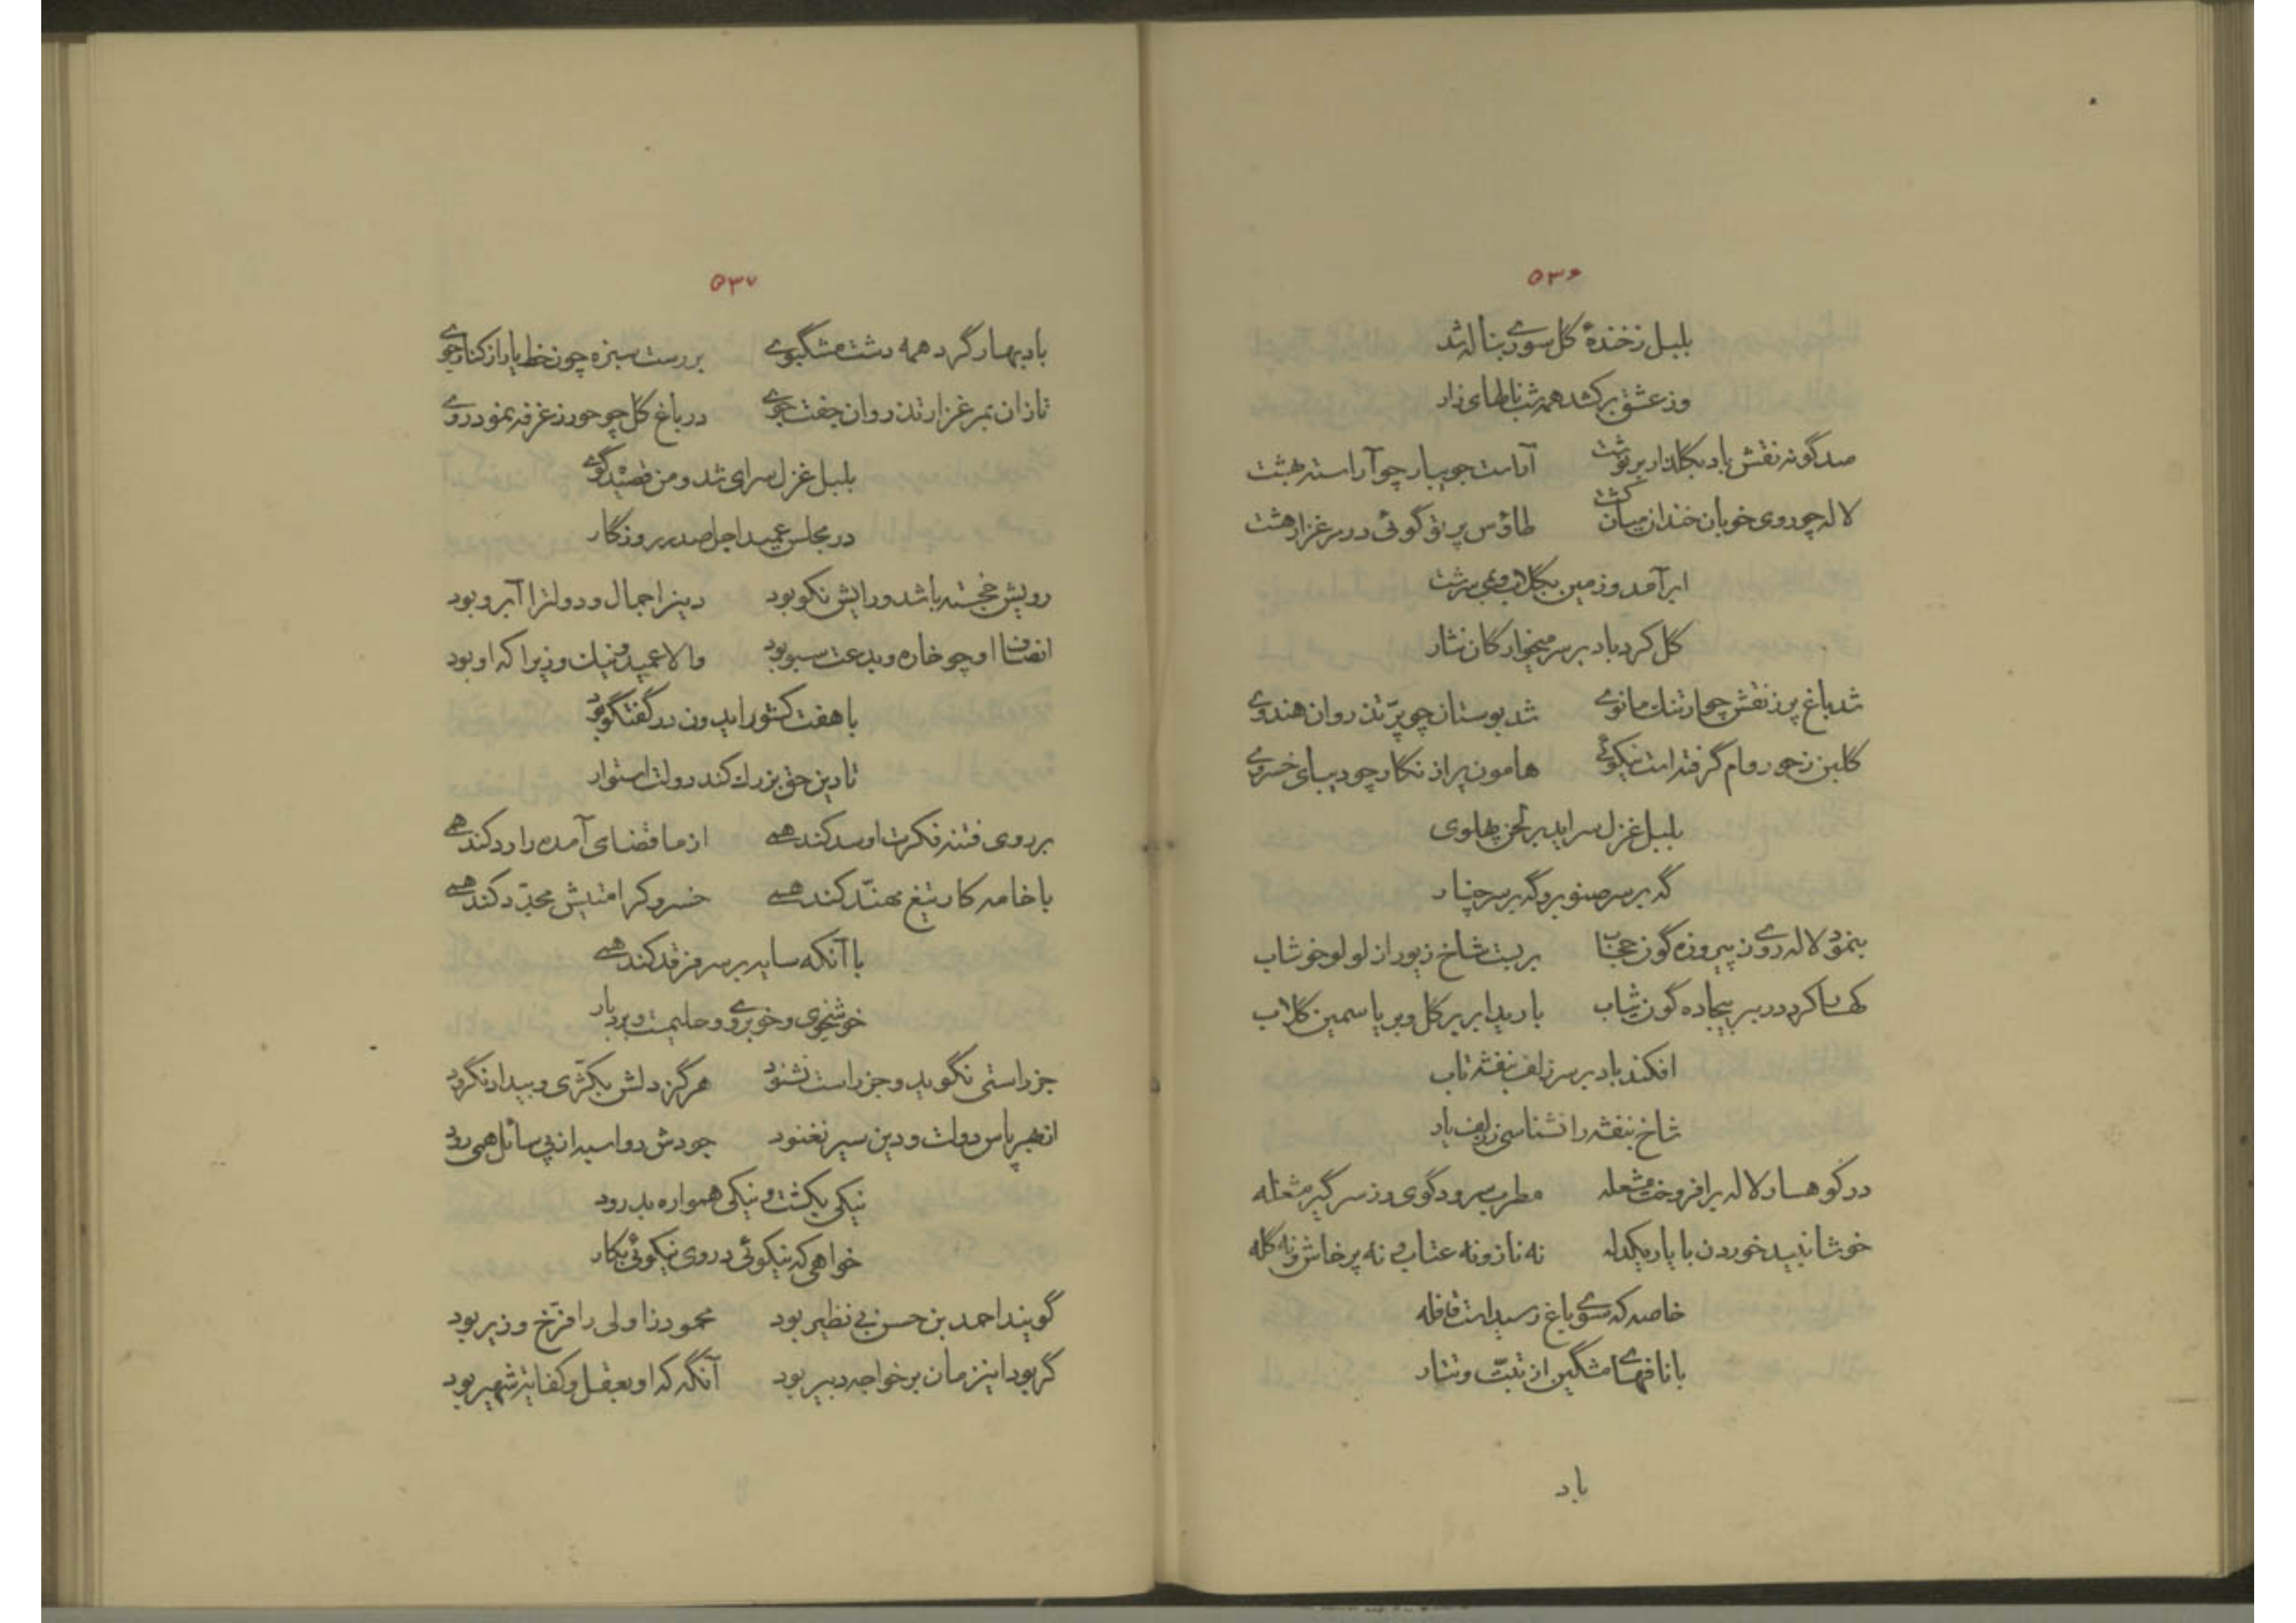 ۵۳۶
بلبل ز خندهٔ گل سوری بناله شد
وز عشق برکشد همه شب نالهای زار
صد گونه نقش باد بگلزار بر نوشت آراست جویبار چو آراسته بهشت
لاله چو روی خوبان خندان میان کشت طاؤس پر تو گوئی در مرغزار هشت
ابر آمد و زمین بگلاب و بمی سرشت
گل کرد باد بر سر میخوارگان نثار
شد باغ پر ز نقش چو ارتنک مانوی شد بوستان چو پرّ تذروان هندوی
گلبن ز حور وام گرفته است نیکوئی هامون پر از نگار چو دیبای خسروی
بلبل غزل سراید بر لحن پهلوی
گه بر سر صنوبر و گه بر سر چنار
بنمود لاله روی ز پیروزه گون حجاب بر بست شاخ زیور از لولو خوشاب
کهسا کرد در بر بیجاده گون ثیاب بارید ابر بر گل و بر یاسمین گلاب
افکند باد بر سر زلف بنفشه تاب
شاخ بنفشه را نشناسی ز زلف یار
در کوهسار لاله برافروخت مشعله مطرب سرود گوی و ز سر گیر مشغله
خوشا نبید خوردن با یار یکدله نه ناز و نه عتاب و نه پرخاش و نه گله
خاصه که سوی باغ رسید است قافله
با نافهای مشگین از تبّت و تتار
باد
۵۳۷
باد بهار گرد همه دشت مشگبوی بر رست سبزه چون خط یار از کنار جوی
تازان بمرغزار تذروان جفت جوی در باغ گل چو حور ز غرفه نمود روی
بلبل غزل سرای شد و من قصیده گوی
در مجلس عمید اجل صدر روزگار
رویش خجسته باشد و رایش نکو بود دینرا جمال و دولترا آبرو بود
انصاف او چو خاره و بدعت سبو بود والا عمید و نیک وزیرا که او بود
با هفت کشور ایدون در گفتگو بود
تا دین حق بزرک کند دولت استوار
بر روی فتنه فکرت او سد کند همی از ما قضای آمده را رد کند همی
با خامه کار تیغ مهنّد کند همی خسرو کرامتیش مجدّد کند همی
با آنکه سایه بر سر فرقد کند همی
خوشخوی و خوبروی و حلیمست و بردبار
جز راستی نگوید و جز راست نشنود هرگز دلش بکژی و بیداد نگرود
از بهر پاس دولت و دین سیر نغنود جودش دو اسبه از پی سائل همی رود
نیکی بکشت و نیکی همواره بدرود
خواهی که نیکوئی دروی نیکوئی بکار
گویند احمد بن حسن بی نظیر بود محمود زاولی را فرّخ وزیر بود
گر بود اینزمان بر خواجه دبیر بود آنگه که او بعقل و کفایة شهیر بود